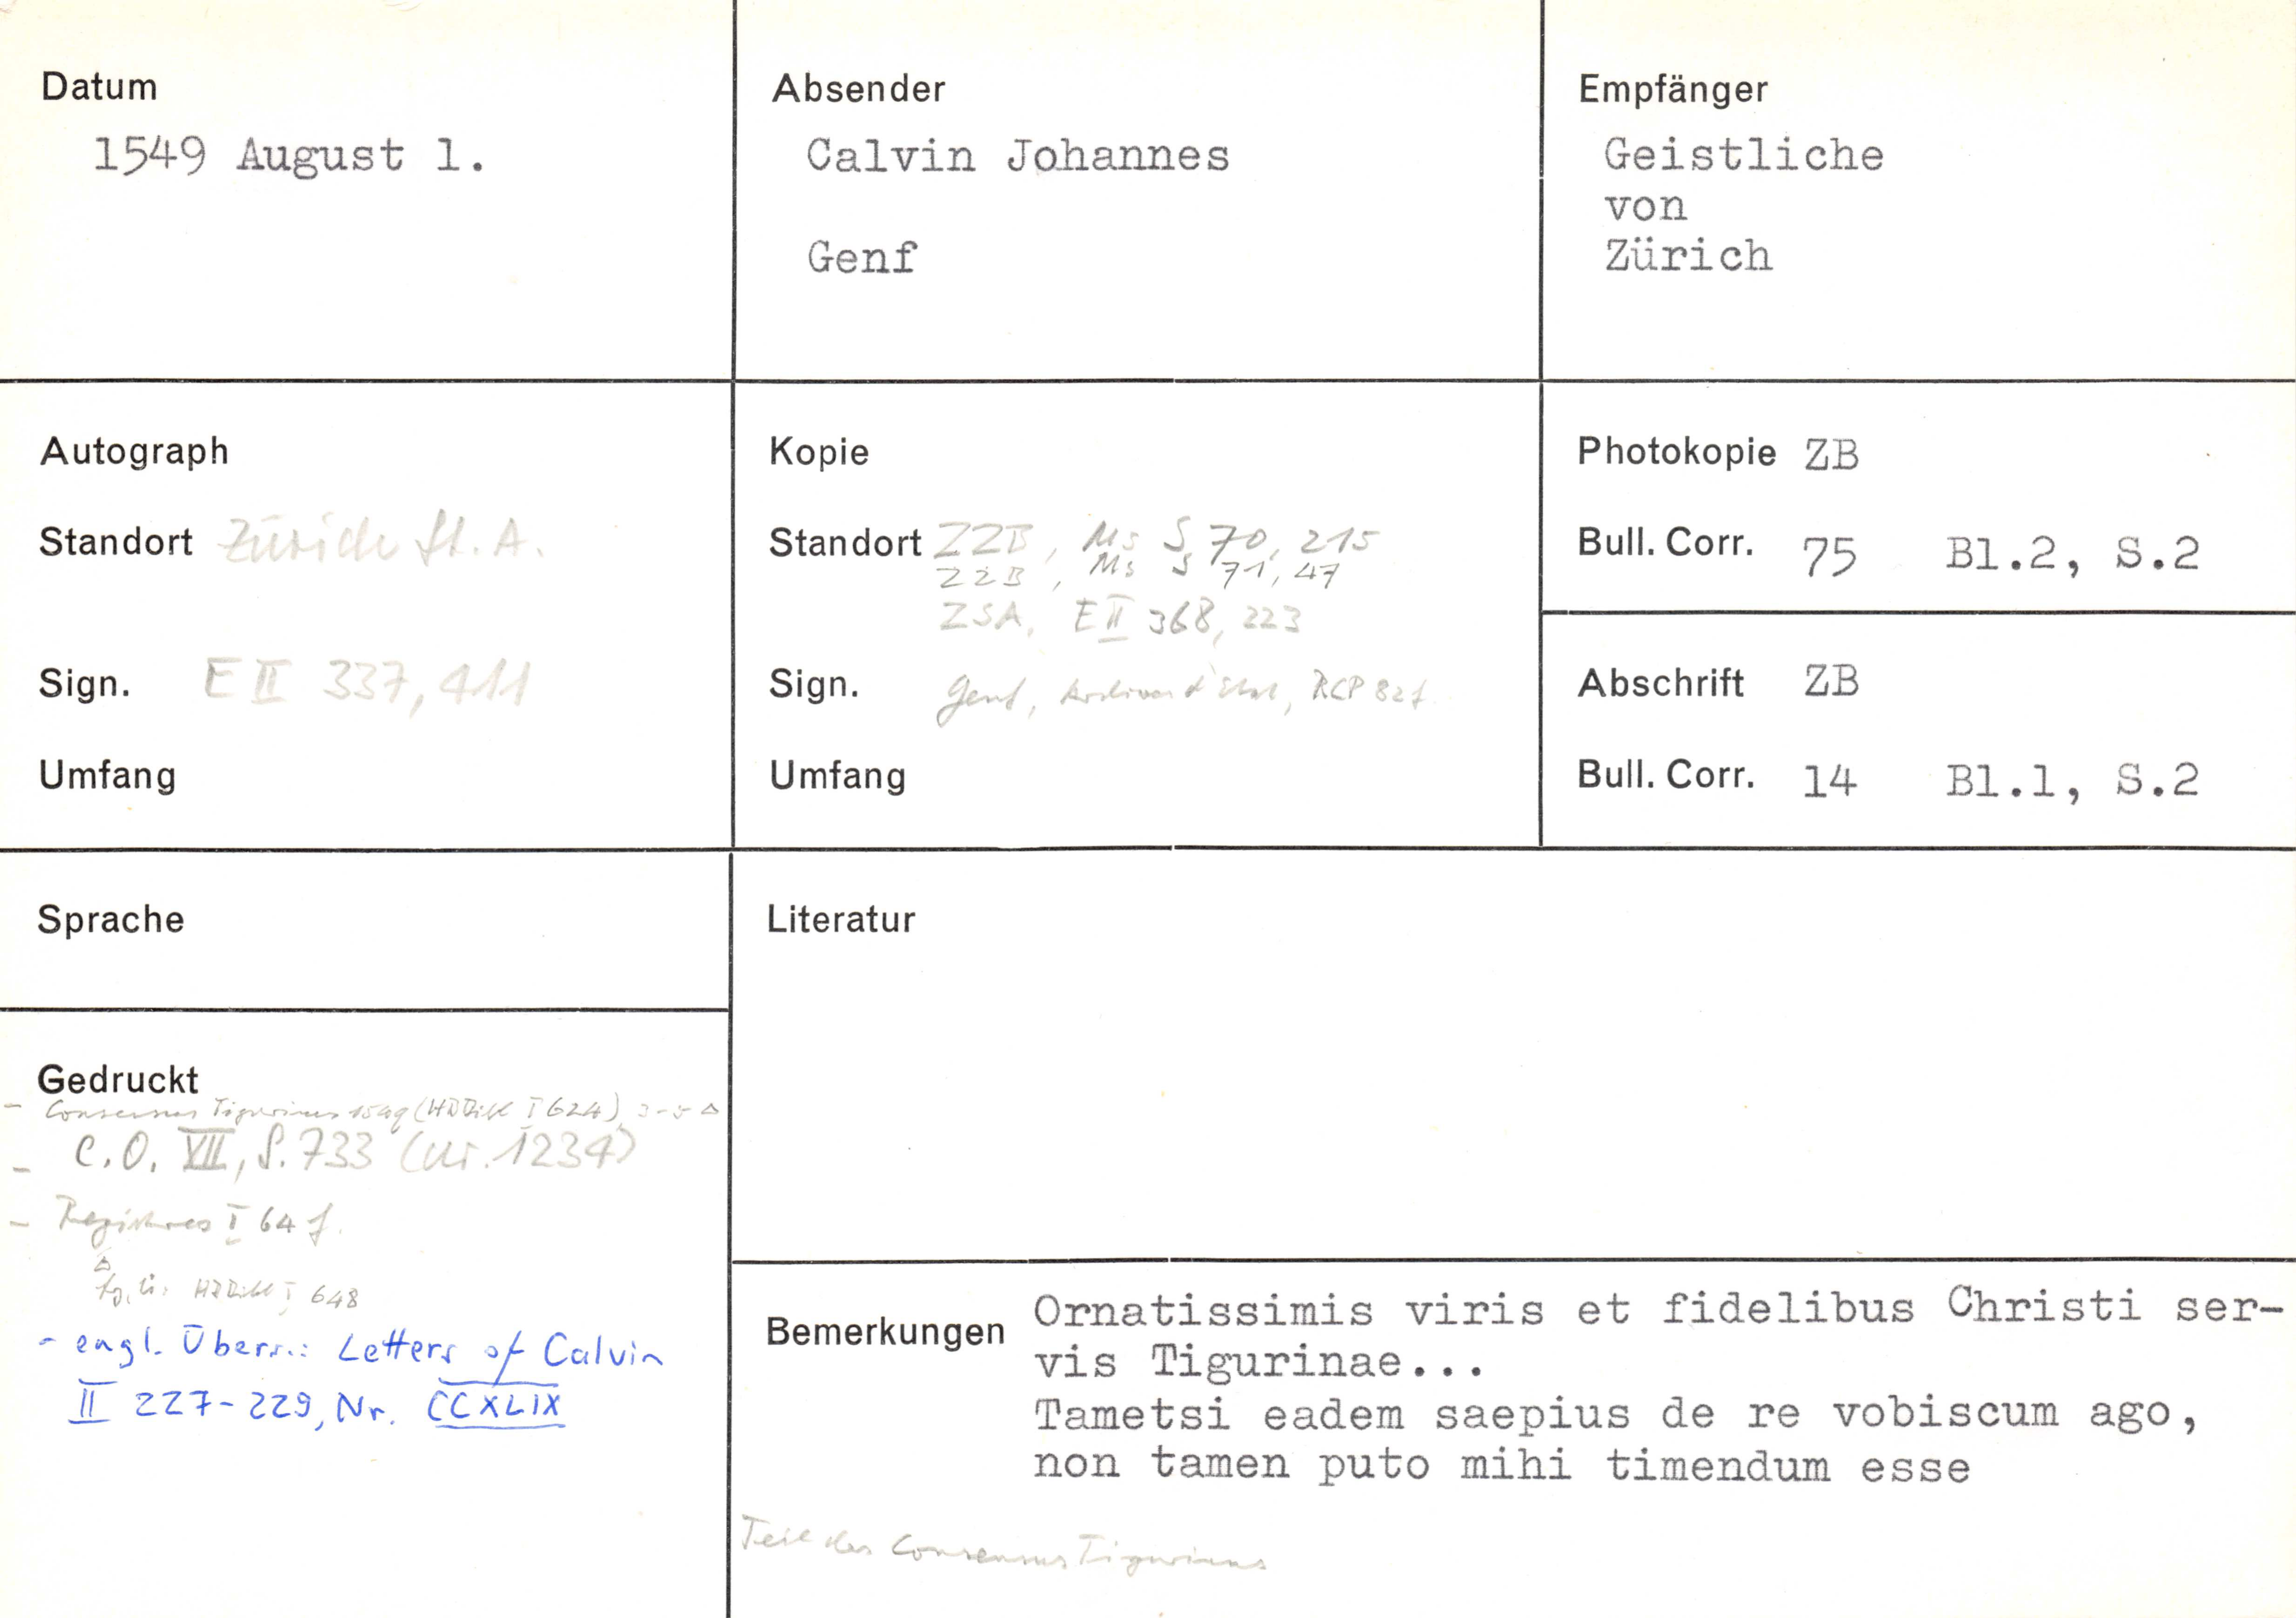 Datum
1549 August 1.
Absender
Calvin Johannes
Genf
Empfänger
Geistliche
von
Zürich
Autograph
Standort Zürich St. A.
Sign. E II 337, 411
Umfang
Kopie
Standort ZZB, Ms S 70, 215
ZZB, Ms S 71, 47
ZSA, E II 368, 223
Sign. Genf, Archives d'Etat, RCP 82f
Umfang
Photokopie ZB
Bull. Corr. 75 Bl.2, S.2
Abschrift ZB
Bull. Corr. 14 Bl.1, S.2
Sprache
Gedruckt
- Consensus Tigurinus 1549 (HBBibl I 624), 3-5 Δ
- C.O. VII, S. 733 (Nr. 1234)
- Registres I 64 f.
Δ
HBBibl I 648
- engl. Übers.: Letters of Calvin
II 227-229, Nr. CCXLIX
Literatur
Bemerkungen
Ornatissimis viris et fidelibus Christi ser-
vis Tigurinae...
Tametsi eadem saepius de re vobiscum ago,
non tamen puto mihi timendum esse
Teil des Consensus Tigurinus